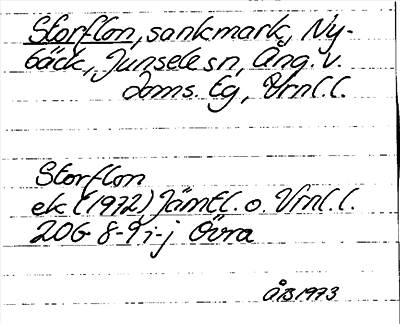 Storflon, sankmark, Ny-
bäck, Junsele sn, Ång. v.
doms. tg, Vrnl.l.
Storflon
ek (1972) Jämtl. o. Vrnl.l.
20G 8-9 i-j Övra
ÅB 1973